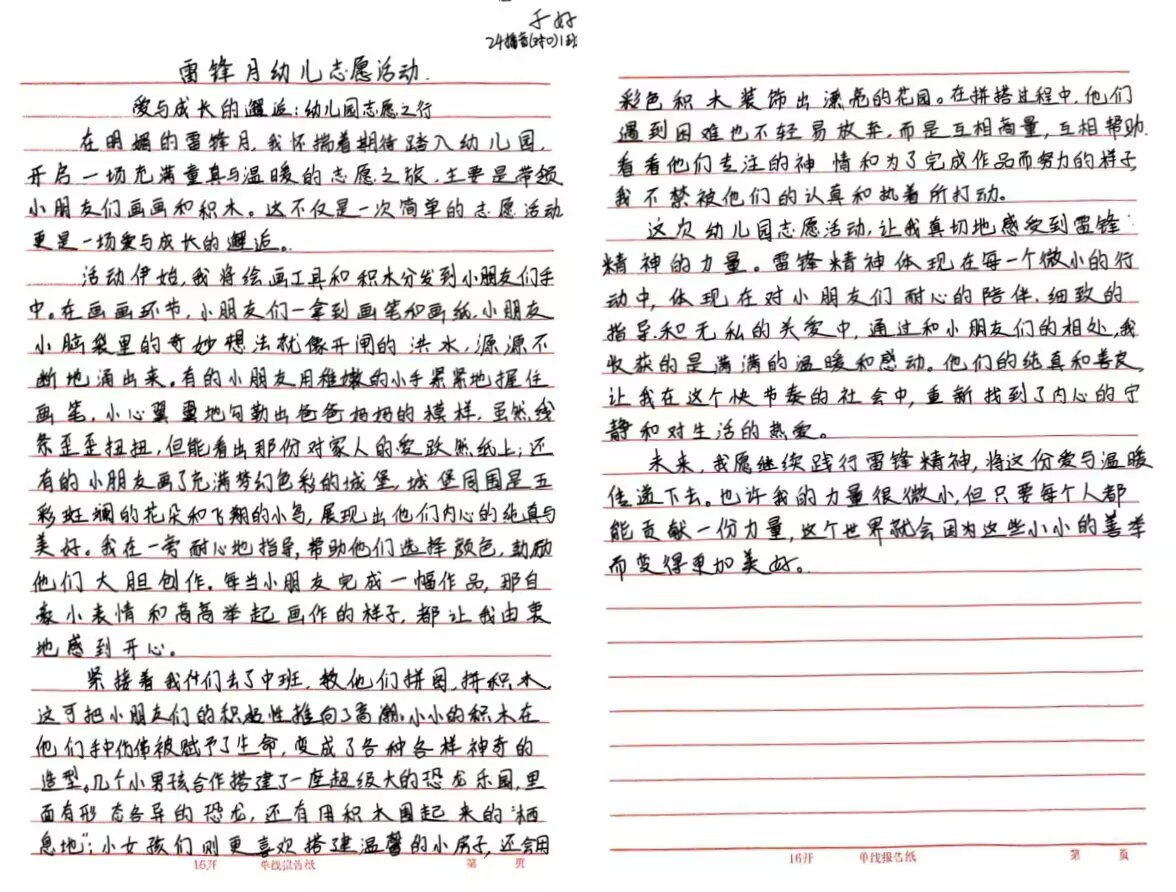 于好
24播音(对口)1班
雷锋月幼儿志愿活动.
爱与成长的邂逅:幼儿园志愿之行
在明媚的雷锋月,我怀揣着期待踏入幼儿园,
开启一场充满童真与温暖的志愿之旅,主要是带领
小朋友们画画和积木。这不仅是一次简单的志愿活动
更是一场爱与成长的邂逅。
活动伊始,我将绘画工具和积木分发到小朋友们手
中。在画画环节,小朋友们一拿到画笔和画纸,小朋友
小脑袋里的奇妙想法就像开闸的洪水,源源不
断地涌出来。有的小朋友用稚嫩的小手紧紧地握住
画笔,小心翼翼地勾勒出爸爸妈妈的模样,虽然线
条歪歪扭扭,但能看出那份对家人的爱跃然纸上;还
有的小朋友画了充满梦幻色彩的城堡,城堡周围是五
彩斑斓的花朵和飞翔的小鸟,展现出他们内心的纯真与
美好。我在一旁耐心地指导,帮助他们选择颜色,鼓励
他们大胆创作。每当小朋友完成一幅作品,那自
豪小表情和高高举起画作的样子,都让我由衷
地感到开心。
紧接着我们去了中班,教他们拼图,拼积木,
这可把小朋友们的积极性推向了高潮,小小的积木在
他们手中仿佛被赋予了生命,变成了各种各样神奇的
造型。几个小男孩合作搭建了一座超级大的恐龙乐园,里
面有形态各异的恐龙,还有用积木围起来的“栖
息地”;小女孩们则更喜欢搭建温馨的小房子,还会用
16开 单线报告纸 第 页
彩色积木装饰出漂亮的花园。在拼搭过程中,他们
遇到困难也不轻易放弃,而是互相商量,互相帮助.
看着他们专注的神情和为了完成作品而努力的样子,
我不禁被他们的认真和执着所打动。
这次幼儿园志愿活动,让我真切地感受到雷锋
精神的力量。雷锋精神体现在每一个微小的行
动中,体现在对小朋友们耐心的陪伴.细致的
指导和无私的关爱中,通过和小朋友们的相处,我
收获的是满满的温暖和感动。他们的纯真和善良,
让我在这个快节奏的社会中,重新找到了内心的宁
静和对生活的热爱。
未来,我愿继续践行雷锋精神,将这份爱与温暖
传递下去。也许我的力量很微小,但只要每个人都
能贡献一份力量,这个世界就会因为这些小小的善举
而变得更加美好。
16开 单线报告纸 第 页